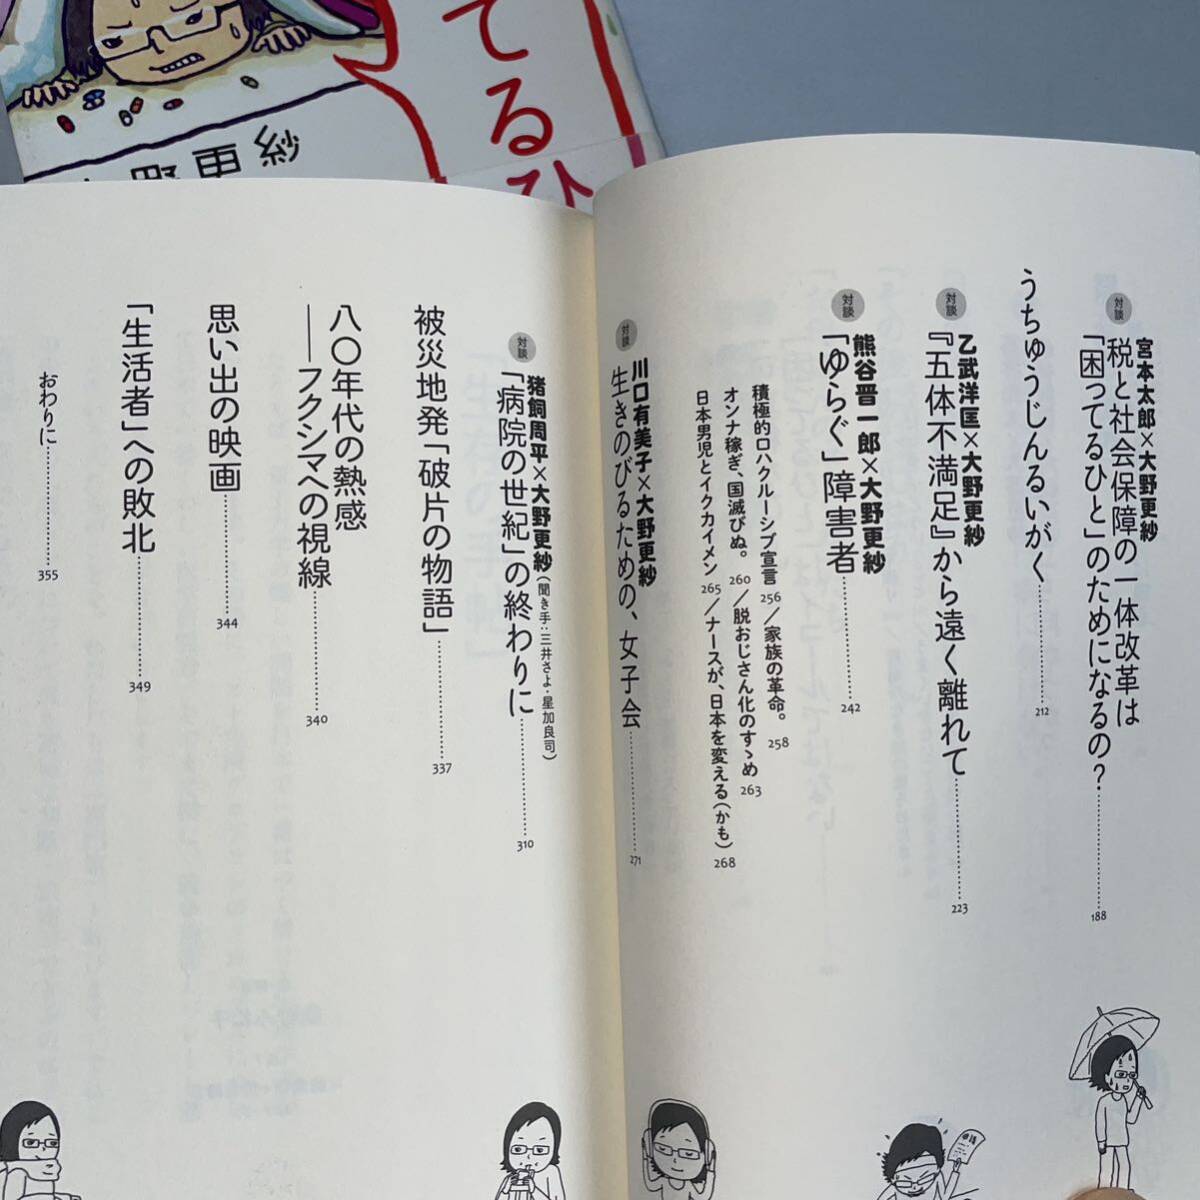 てるひ
紗更野
対談
宮本太郎×大野更紗
税と社会保障の一体改革は
「困ってるひと」のためになるの？
188
うちゅうじんるいがく
212
対談
乙武洋匡×大野更紗
『五体不満足』から遠く離れて
223
対談
熊谷晋一郎×大野更紗
「ゆらぐ」障害者
242
積極的ロハクルーシブ宣言 256／家族の革命。 258
オンナ稼ぎ、国滅びぬ。 260／脱おじさん化のすゝめ 263
日本男児とイクカイメン 265／ナースが、日本を変える（かも） 268
対談
川口有美子×大野更紗
生きのびるための、女子会
271
対談
猪飼周平×大野更紗（聞き手：三井さよ・星加良司）
「病院の世紀」の終わりに
310
被災地発「破片の物語」
337
八〇年代の熱感
──フクシマへの視線
340
思い出の映画
344
「生活者」への敗北
349
おわりに
355